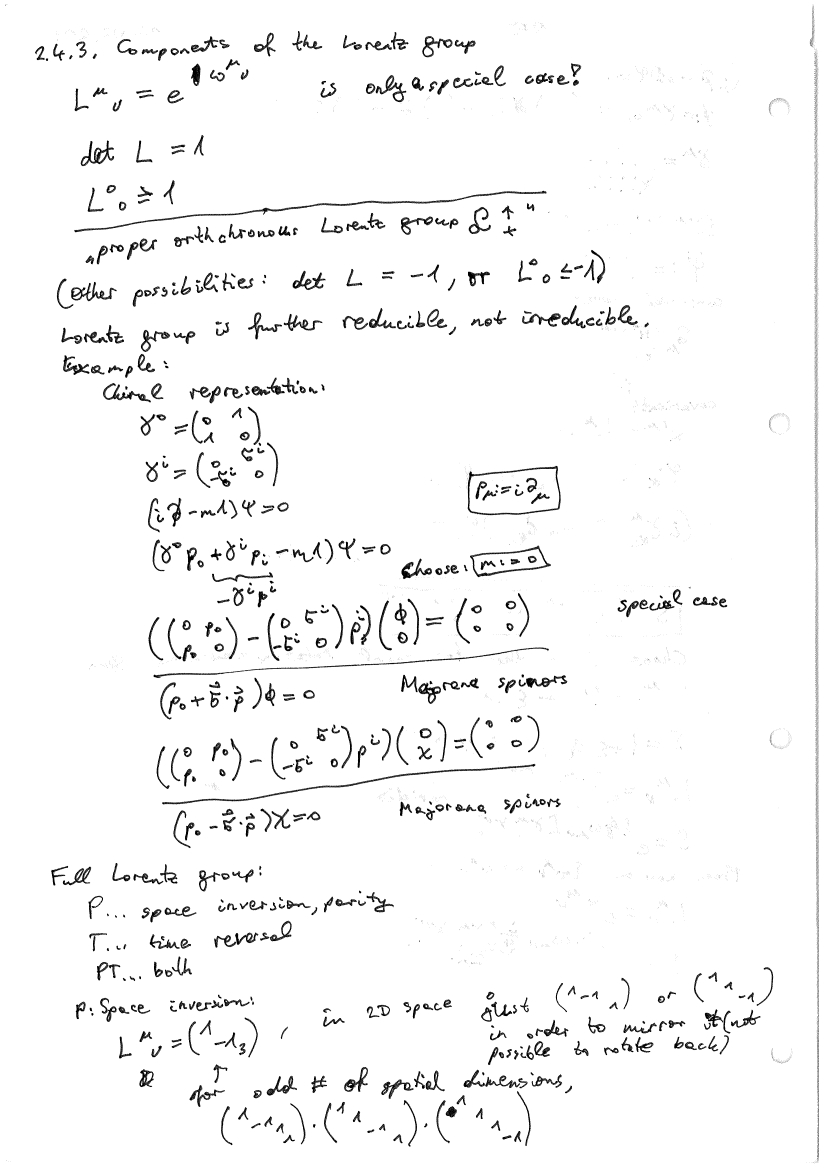 2.4.3. Components of the Lorentz group
L^μ_ν = e^{ω^μ_ν} is only a special case!
det L = 1
L^0_0 ≥ 1
"proper orthchronous Lorentz group L^↑_+"
(Other possibilities: det L = -1, or L^0_0 ≤ -1)
Lorentz group is further reducible, not irreducible.
Example:
Chiral representation:
γ^0 = (0 1 / 1 0)
γ^i = (0 σ^i / -σ^i 0)
(i∂̸ - m1)Ψ = 0
p_μ = i∂_μ
(γ^0 p_0 + γ^i p_i - m1)Ψ = 0
-γ^i p^i
Choose: m := 0
((0 p_0 / p_0 0) - (0 σ^i / -σ^i 0) p^i)(φ / 0) = (0 0 / 0 0) special case
(p_0 + σ⃗·p⃗)φ = 0 Majorana spinors
((0 p_0 / p_0 0) - (0 σ^i / -σ^i 0) p^i)(0 / χ) = (0 0 / 0 0)
(p_0 - σ⃗·p⃗)χ = 0 Majorana spinors
Full Lorentz group:
P... space inversion, parity
T... time reversal
PT... both
P: Space inversion:
L^μ_ν = (1 -1_3), in 2D space just (1 -1 1) or (1 1 -1)
in order to mirror it (not
possible to rotate back)
↑
for odd # of spatial dimensions,
(1 -1 1 1)·(1 1 -1 1)·(1 1 1 -1)